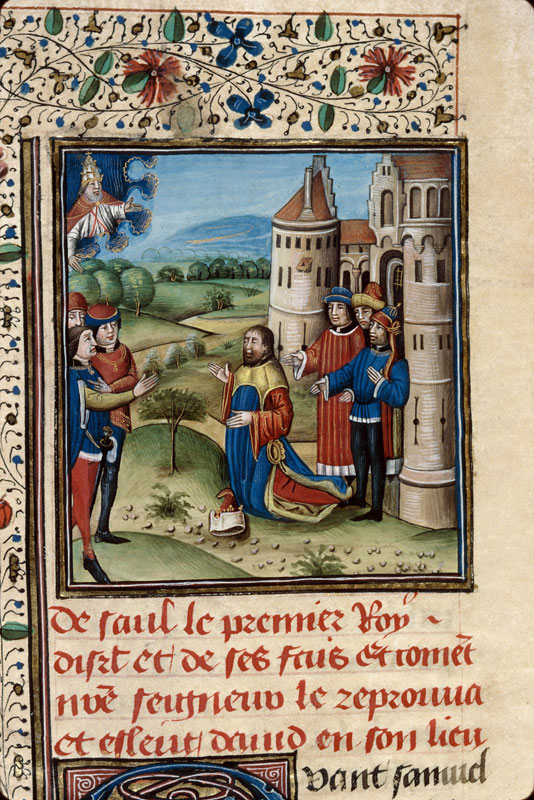 De saul le premier Roy
disrl et de ses fais et coment
nre seigneur le reprouua
et esleut dauid en son lieu
vant samuel